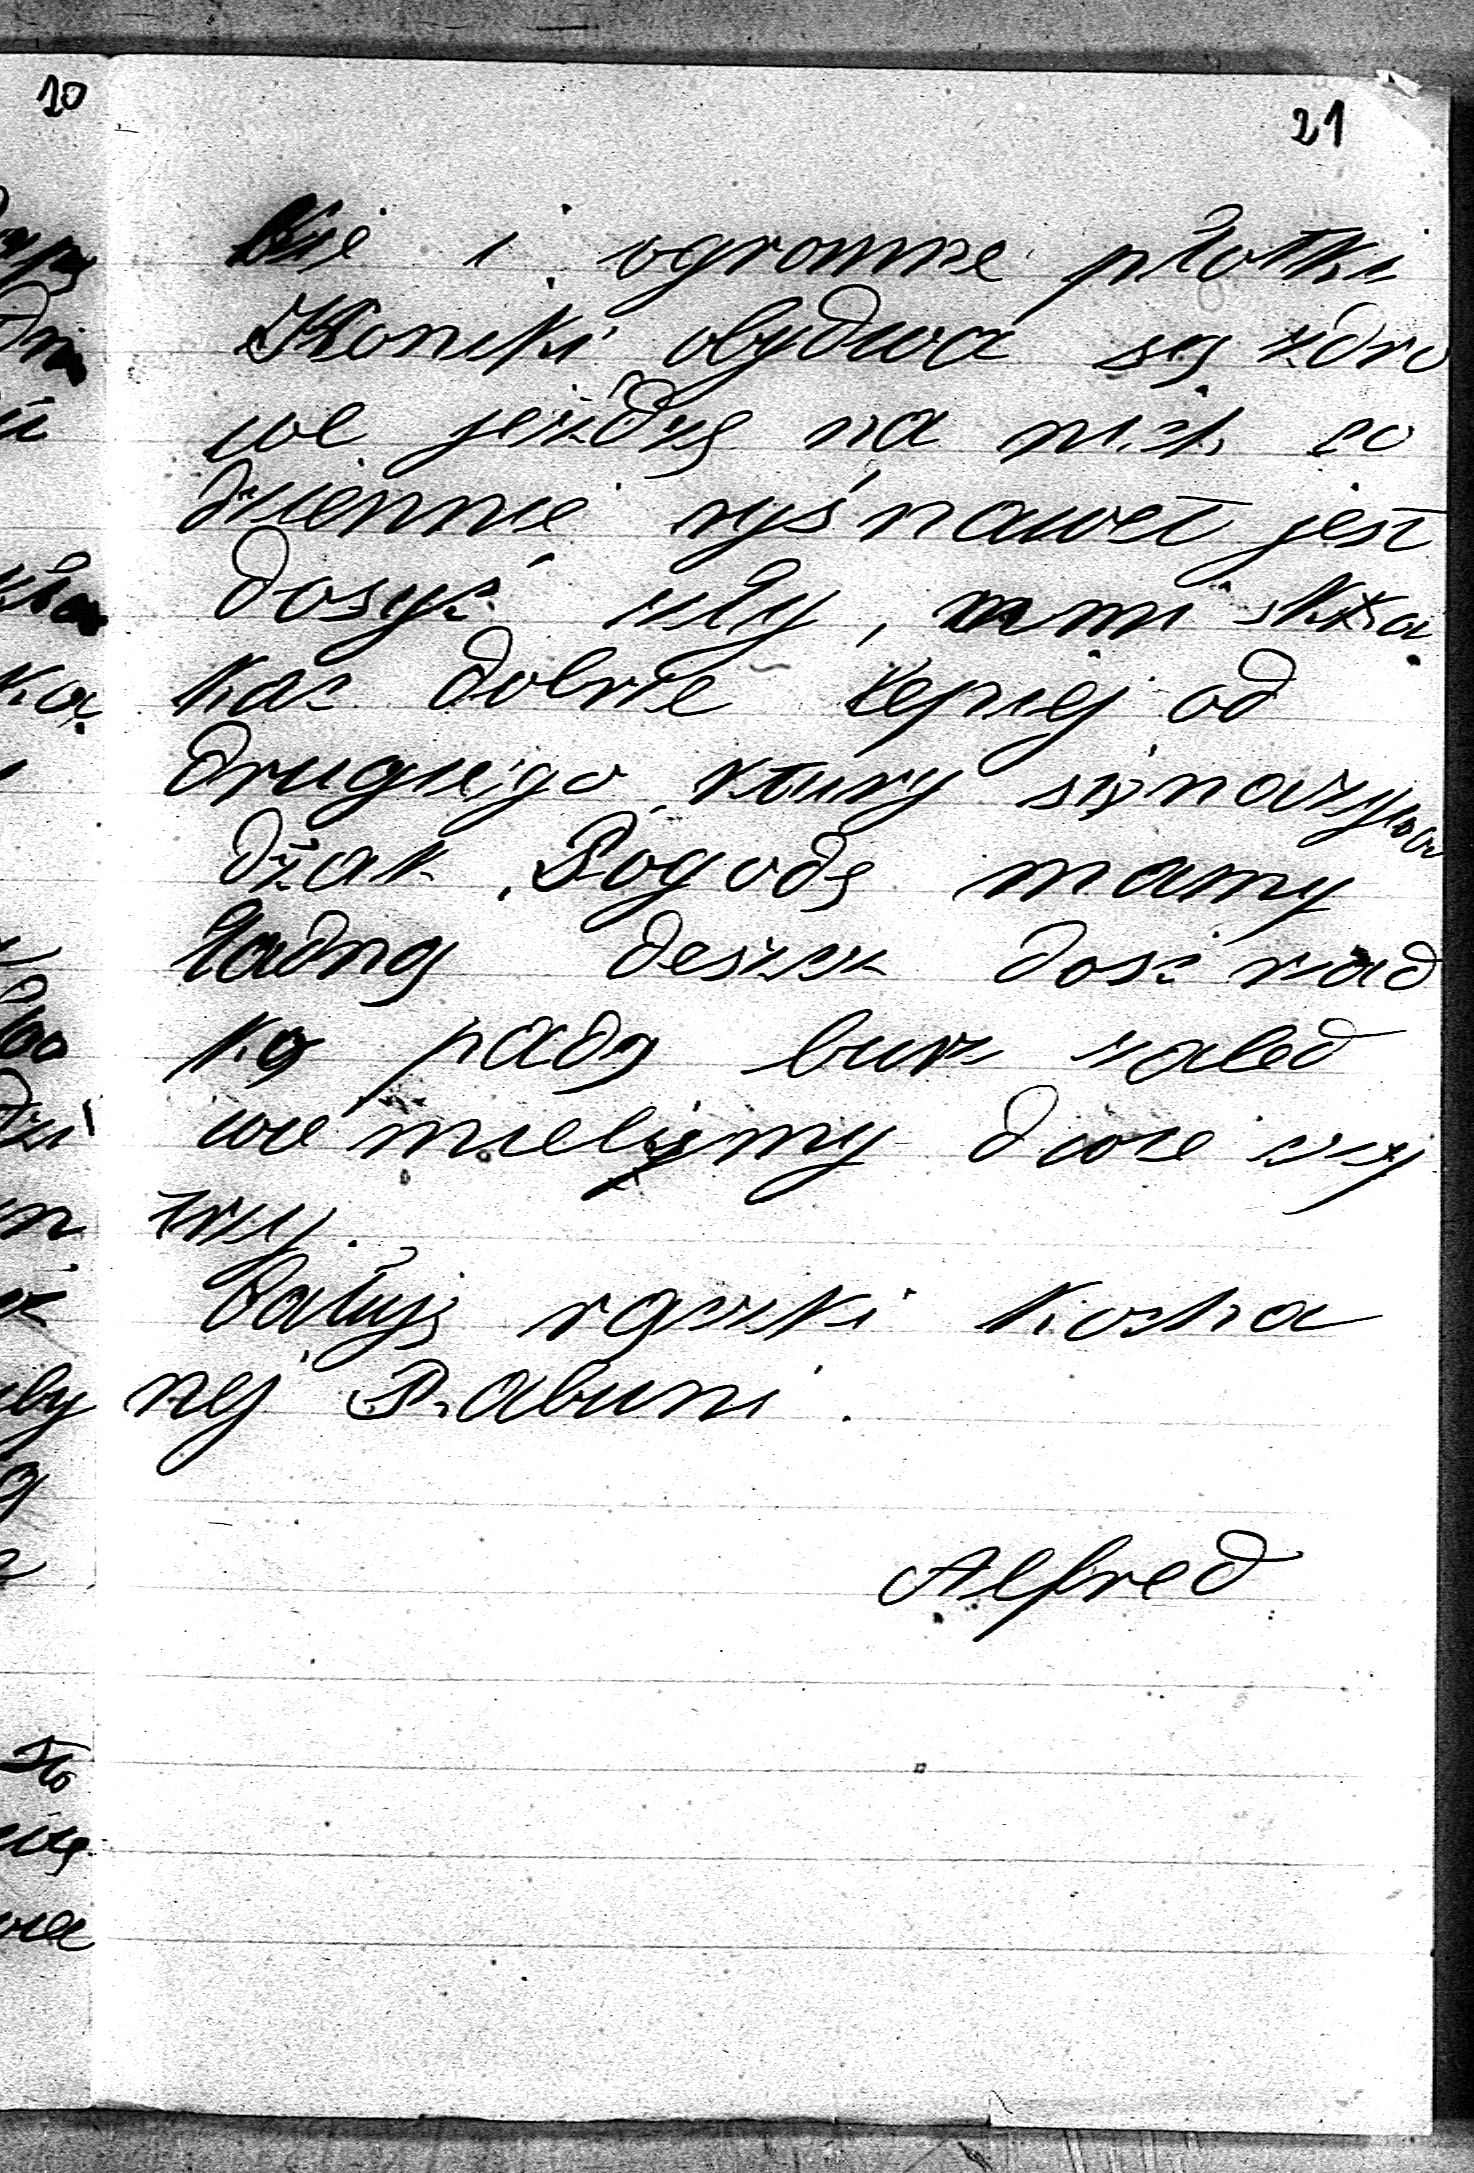 20
21
kie i ogromne płotki
Koniki obydwa są zdro
we jeżdżę na nich co
dziennie ryś nawet jest
dosyć zły, umi skka
kac dobrze lepiej od
drugiego ktury się nazywa
dżak. Pogodę mamy
ładną deszcz dość rzad
ko pada burz zaled
wie mielismy dwie czy
trzy.
Całuję rączki Kocha
nej Prabuni.
Alfred